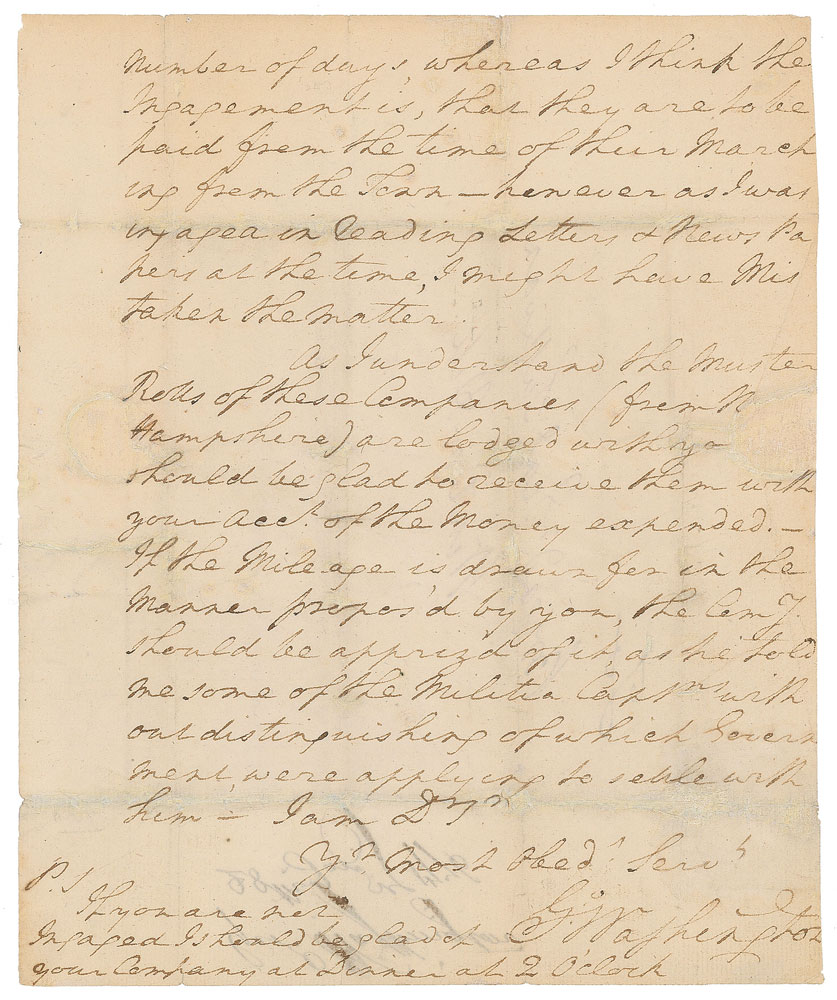 number of days, whereas I think the
Ingagement is, that they are to be
paid from the time of their March
ing from the Town – however as I was
ingaged in reading Letters & News Pa
pers at the time, I might have Mis
taken the matter.
As I understand the Muster
Rolls of these Companies (from N
Hampshire) are lodged with yo
should be glad to receive them with
your Acct. of the Money expended. –
If the Mileage is drawn for in the
Manner propos'd by you, the Comy.
should be appriz'd of it, as he told
me some of the Militia Captns with
out distinguishing of which Govern
ment, were applying to settle with
him – I am Dr Sr
Yr Most Obedt Servt
G: Washington
P.S
If you are not
Ingaged I should be glad of
your Company at Dinner at 2 Oclock